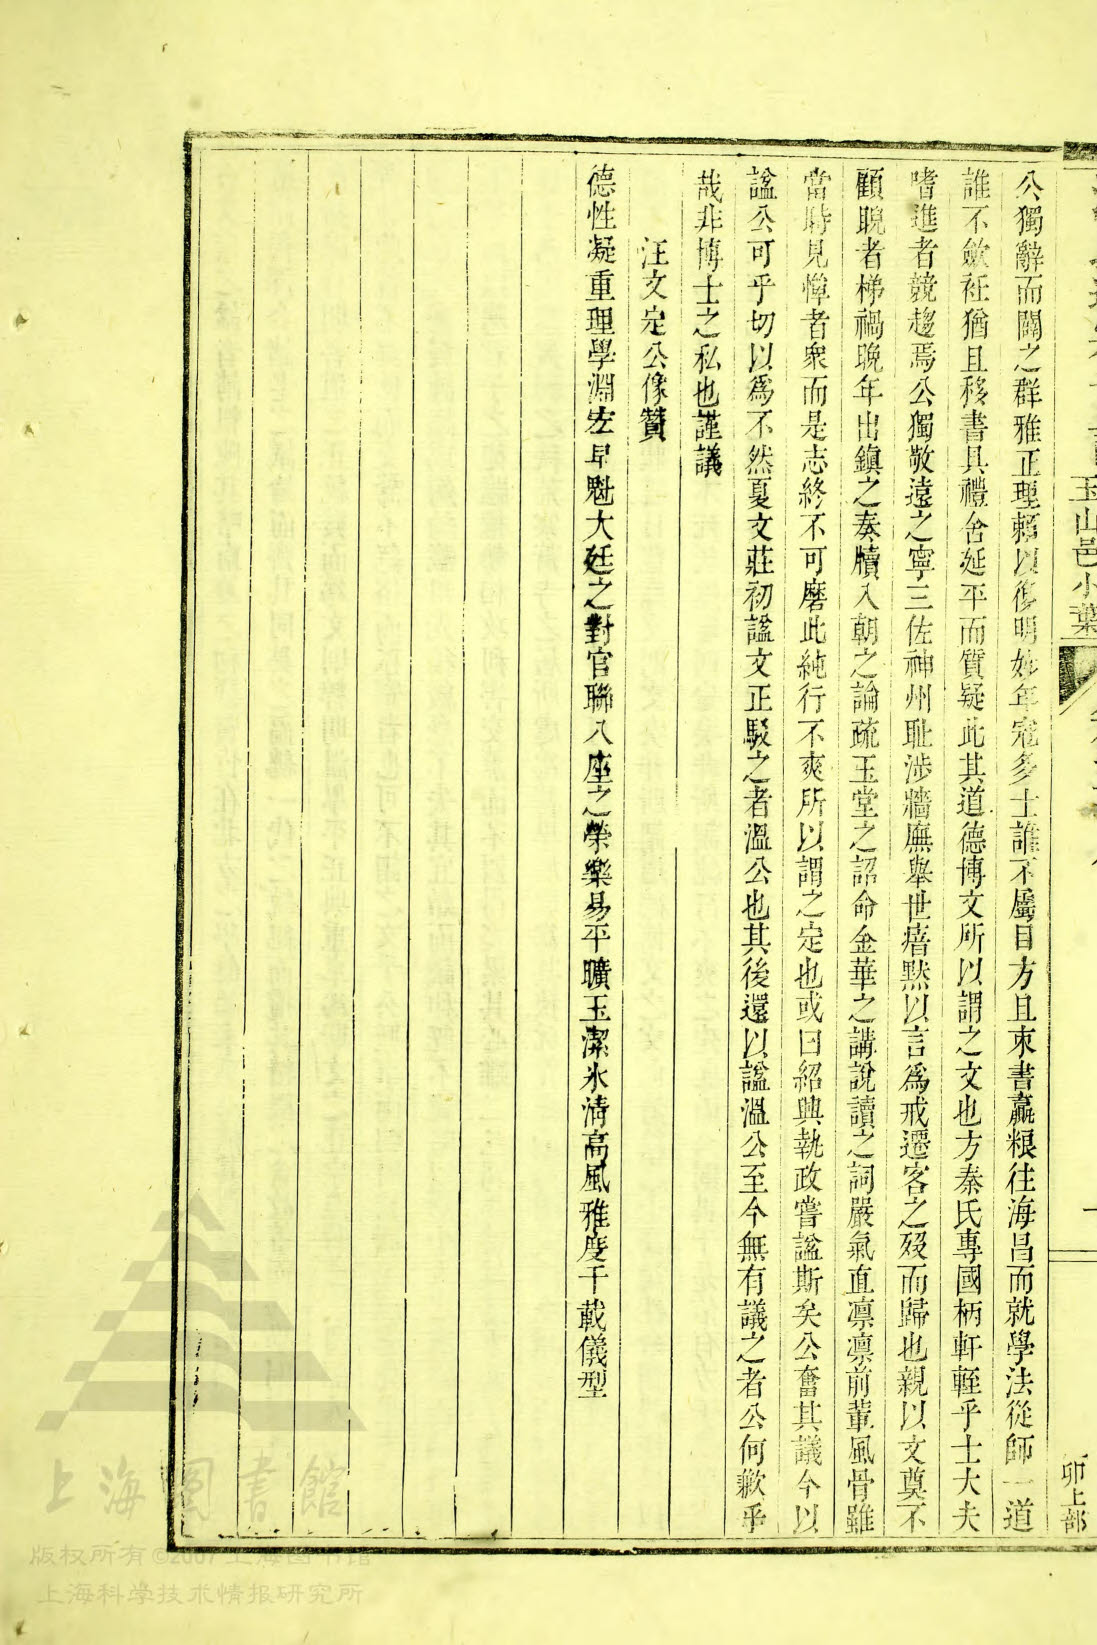 公獨辭而闢之群雅正理賴以復明妙年冠多士誰不屬目方且束書贏粮往海昌而就學法從師一道
誰不斂衽猶且移書具禮舍延平而質疑此其道德博文所以謂之文也方秦氏專國柄軒輊乎士大夫
嗜進者競趨焉公獨敬遠之寧三佐神州耻涉牆廡舉世瘖黙以言爲戒遷客之歿而歸也親以文奠不
顧睨者梯禍晚年出鎮之奏牘入朝之論疏玉堂之詔命金華之講說讀之詞嚴氣直凛凛前輩風骨雖
當時見憚者衆而是志終不可磨此純行不爽所以謂之定也或曰紹興執政嘗謚斯矣公奮其議今以
謚公可乎切以爲不然夏文莊初謚文正駁之者溫公也其後還以謚溫公至今無有議之者公何歉乎
哉非博士之私也謹議
汪文定公像贊
德性凝重理學淵宏早魁大廷之對官聯八座之榮樂易平曠玉潔氷清高風雅度千載儀型
玉山邑小葉
卯上部
上海圖書館
版权所有©2007上海图书馆
上海科学技术情报研究所